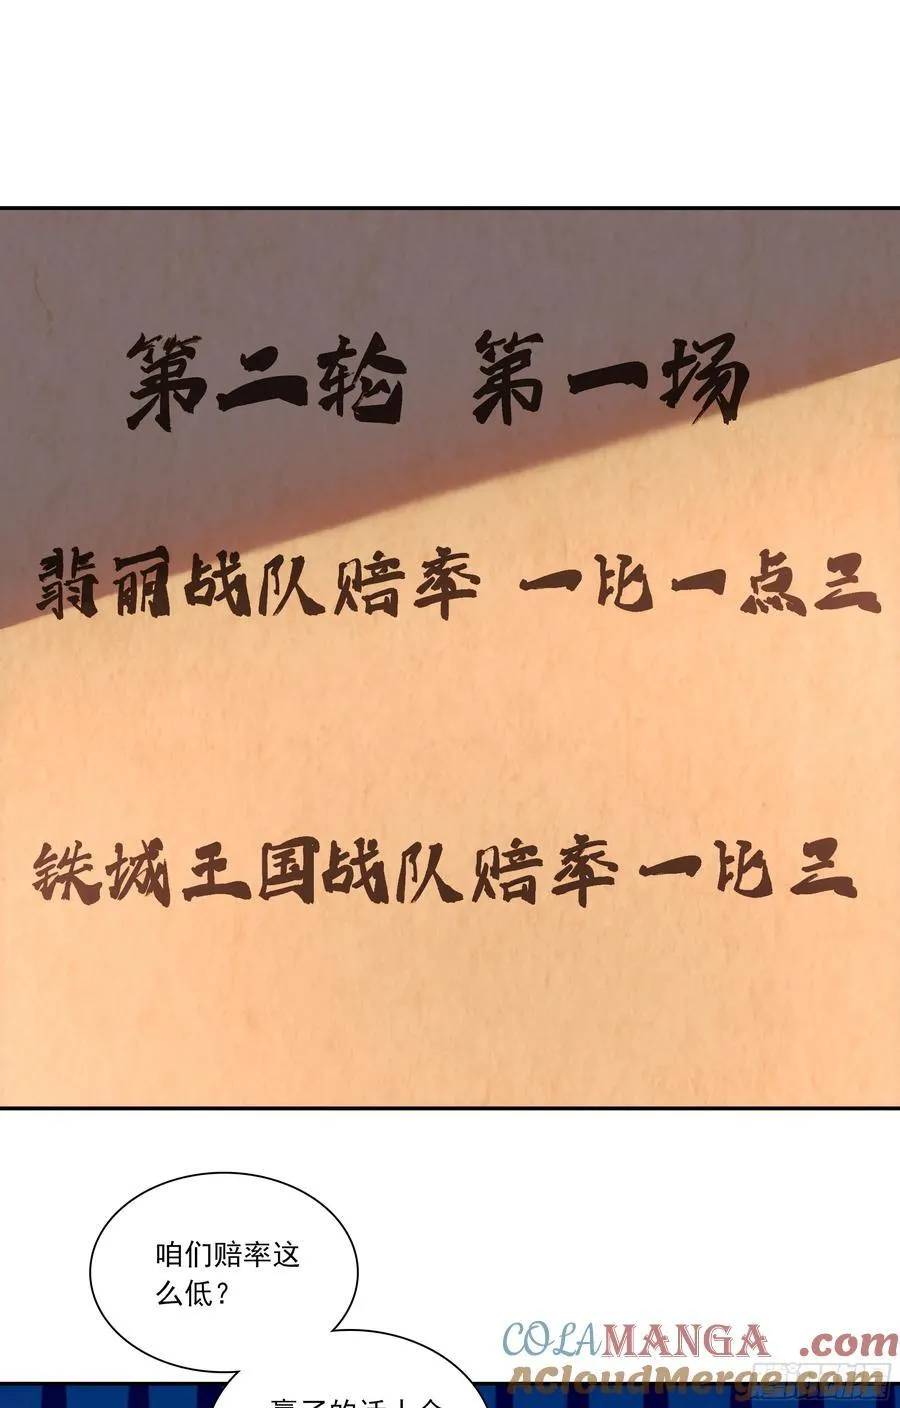 第二轮 第一场
翡丽战队赔率 一比一点三
铁城王国战队赔率一比三
咱们赔率这
么低?
COLAMANGA.com
AcloudMerge.com